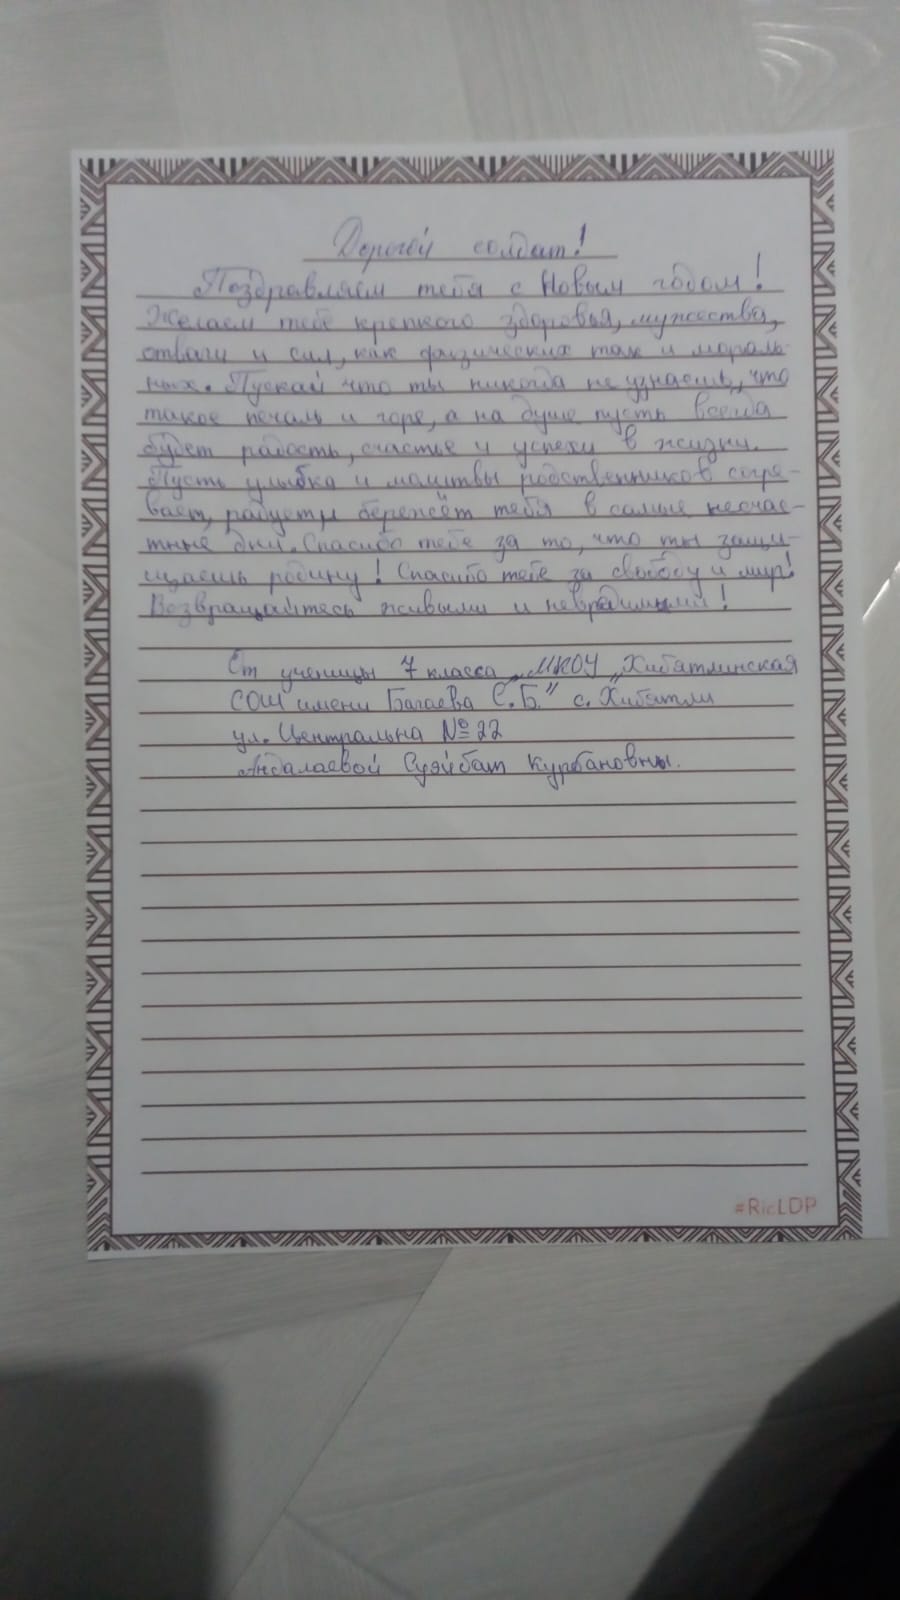 Дорогой солдат!
Поздравляем тебя с Новым годом!
Желаем тебе крепкого здоровья, мужества,
отваги и сил, как физических так и мораль-
ных. Пускай что ты никогда не узнаешь, что
такое печаль и горе, а на душе пусть всегда
будет радость, счастье и успехи в жизни.
Пусть улыбка и молитвы родственников согре-
вает, радует и бережёт тебя в самые несчас-
тные дни. Спасибо тебе за то, что ты защи-
щаешь родину! Спасибо тебе за свободу и мир!
Возвращайтесь живыми и невредимыми!
От ученицы 7 класса „МКОУ „Хибятлинская
СОШ имени Багаева С.Б." с. Хибятли
ул. Центральна №22
Андалаевой Суайбат Курбановны.
#RicLDP